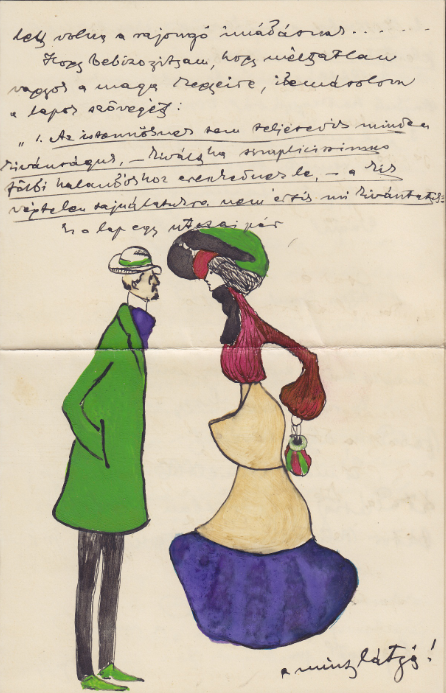 lett volna a rajongó imádásnak......
Hogy bebizonyítsam, hogy méltatlan
vagyok a maga kegyeire, ide másolom
a lapos szövegét:
„1. Az istennőknek sem teljesedik minden
kívánságuk, — kivált ha
földi halandókhoz ereszkednek le, — a kik
végtelen sajnálatukra nem értik mi kívántatik.
Ez a lap egy utazási pár
a mint látják!